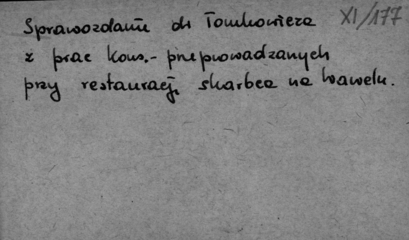 Sprawozdanie dr Tomkowicza XI/177
z prac kons.- przeprowadzanych
przy restauracji skarbca na Wawelu.